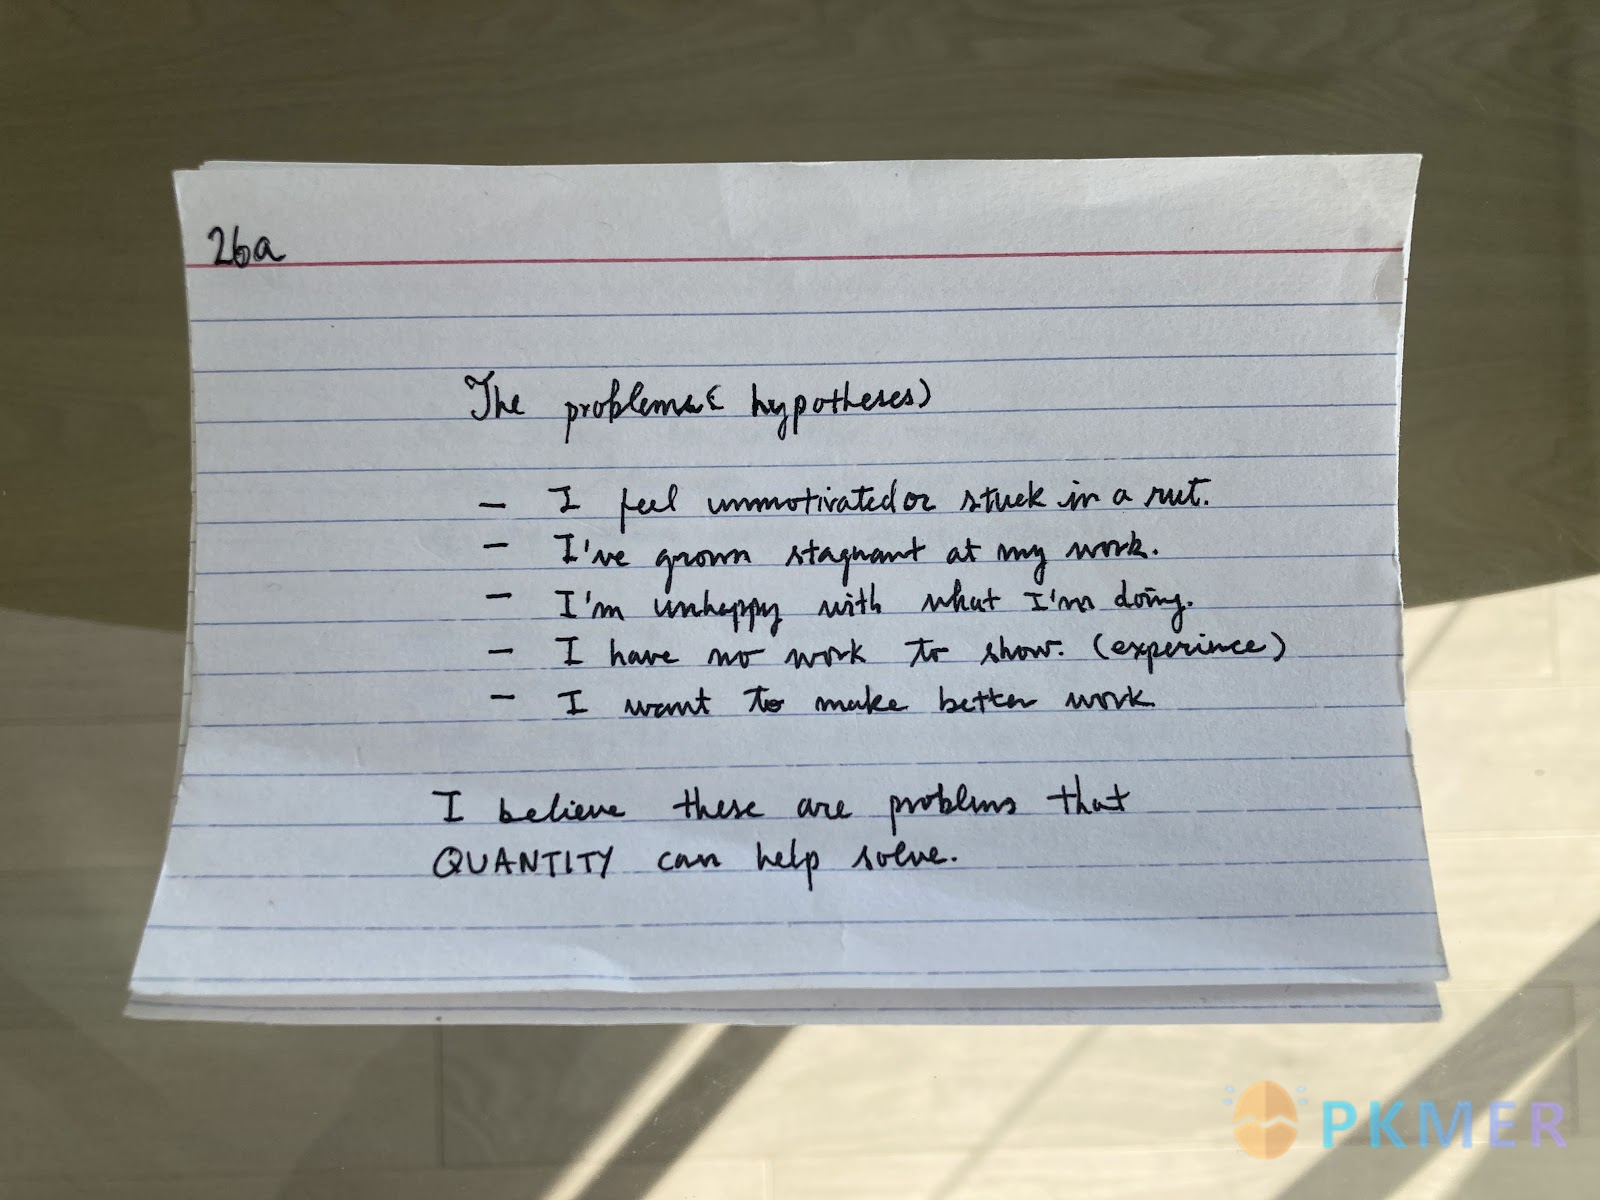 26a
The problems (hypotheses)
- I feel unmotivated or stuck in a rut.
- I've grown stagnant at my work.
- I'm unhappy with what I'm doing.
- I have no work to show. (experince)
- I want to make better work
I believe these are problems that
QUANTITY can help solve.
PKMER